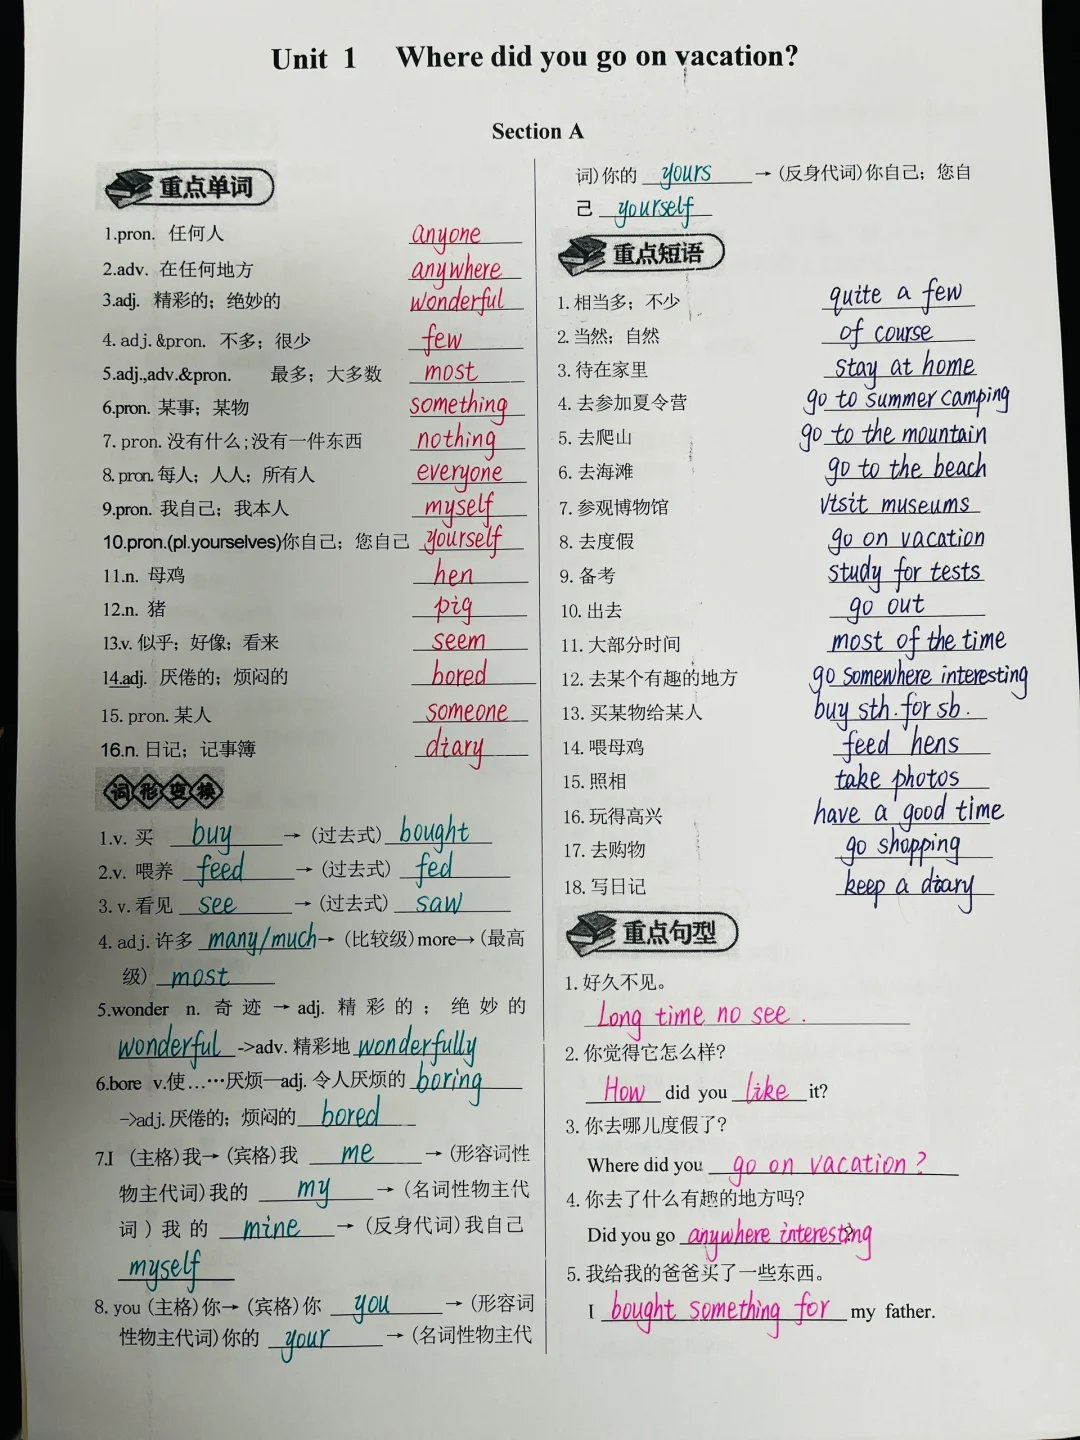 Unit 1 Where did you go on vacation?
Section A
重点单词
1.pron. 任何人 anyone
2.adv. 在任何地方 anywhere
3.adj. 精彩的；绝妙的 wonderful
4. adj.&pron. 不多；很少 few
5.adj.,adv.&pron. 最多；大多数 most
6.pron. 某事；某物 something
7. pron.没有什么;没有一件东西 nothing
8. pron.每人；人人；所有人 everyone
9.pron. 我自己；我本人 myself
10.pron.(pl.yourselves)你自己；您自己 yourself
11.n. 母鸡 hen
12.n. 猪 pig
13.v. 似乎；好像；看来 seem
14.adj. 厌倦的；烦闷的 bored
15. pron.某人 someone
16.n.日记；记事簿 diary
词形变换
1.v. 买 buy → (过去式) bought
2.v. 喂养 feed → (过去式) fed
3. v.看见 see → (过去式) saw
4. adj.许多 many/much → (比较级)more→ (最高
级) most
5.wonder n. 奇迹 → adj. 精彩的；绝妙的
wonderful ->adv.精彩地 wonderfully
6.bore v.使……厌烦—adj.令人厌烦的 boring
->adj.厌倦的；烦闷的 bored
7.I (主格)我→ (宾格)我 me → (形容词性
物主代词)我的 my → (名词性物主代
词)我的 mine → (反身代词)我自己
myself
8. you (主格)你→ (宾格)你 you → (形容词
性物主代词)你的 your → (名词性物主代
词)你的 yours → (反身代词)你自己；您自
己 yourself
重点短语
1.相当多；不少 quite a few
2.当然；自然 of course
3.待在家里 stay at home
4.去参加夏令营 go to summer camping
5.去爬山 go to the mountain
6.去海滩 go to the beach
7.参观博物馆 visit museums
8.去度假 go on vacation
9.备考 study for tests
10.出去 go out
11.大部分时间 most of the time
12.去某个有趣的地方 go somewhere interesting
13.买某物给某人 buy sth. for sb.
14.喂母鸡 feed hens
15.照相 take photos
16.玩得高兴 have a good time
17.去购物 go shopping
18.写日记 keep a diary
重点句型
1.好久不见。
Long time no see .
2.你觉得它怎么样?
How did you like it?
3.你去哪儿度假了?
Where did you go on vacation ?
4.你去了什么有趣的地方吗?
Did you go anywhere interesting?
5.我给我的爸爸买了一些东西。
I bought something for my father.